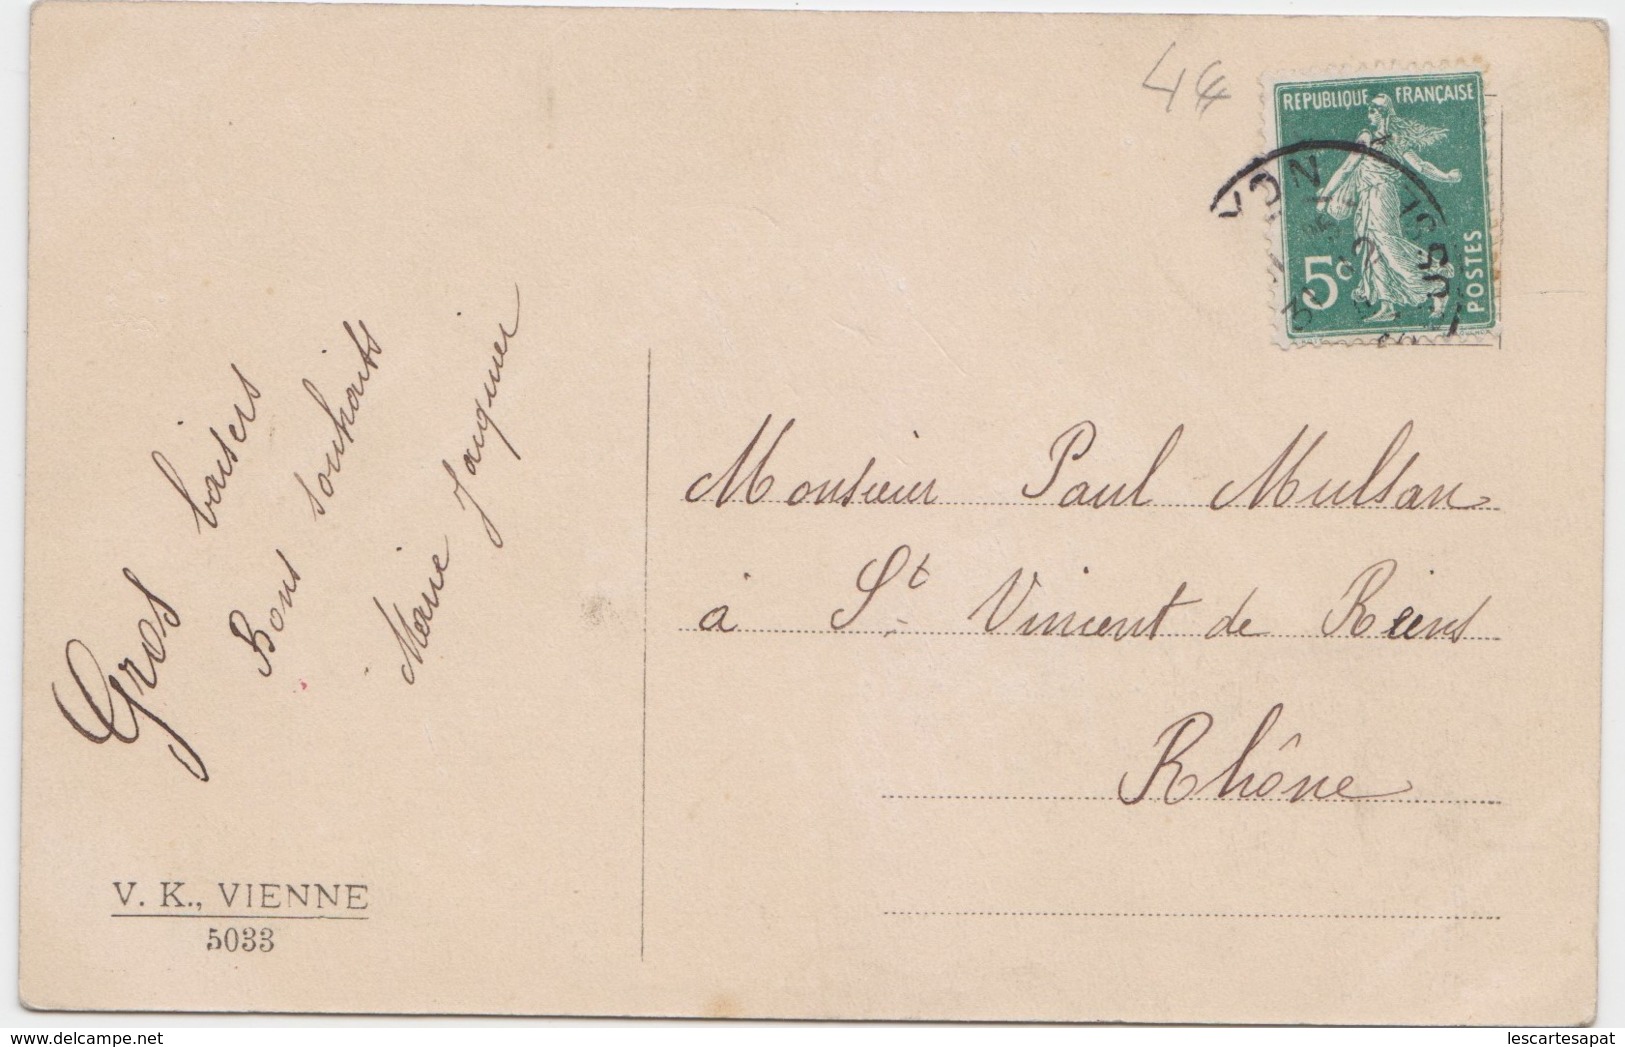 4€
REPUBLIQUE FRANÇAISE
5c
POSTES
YON
Gros baisers
Bons souhaits
Marie Janquier
Monsieur Paul Mulsan
à St Vincent de Reins
Rhône
V. K., VIENNE
5033
lescartesapat